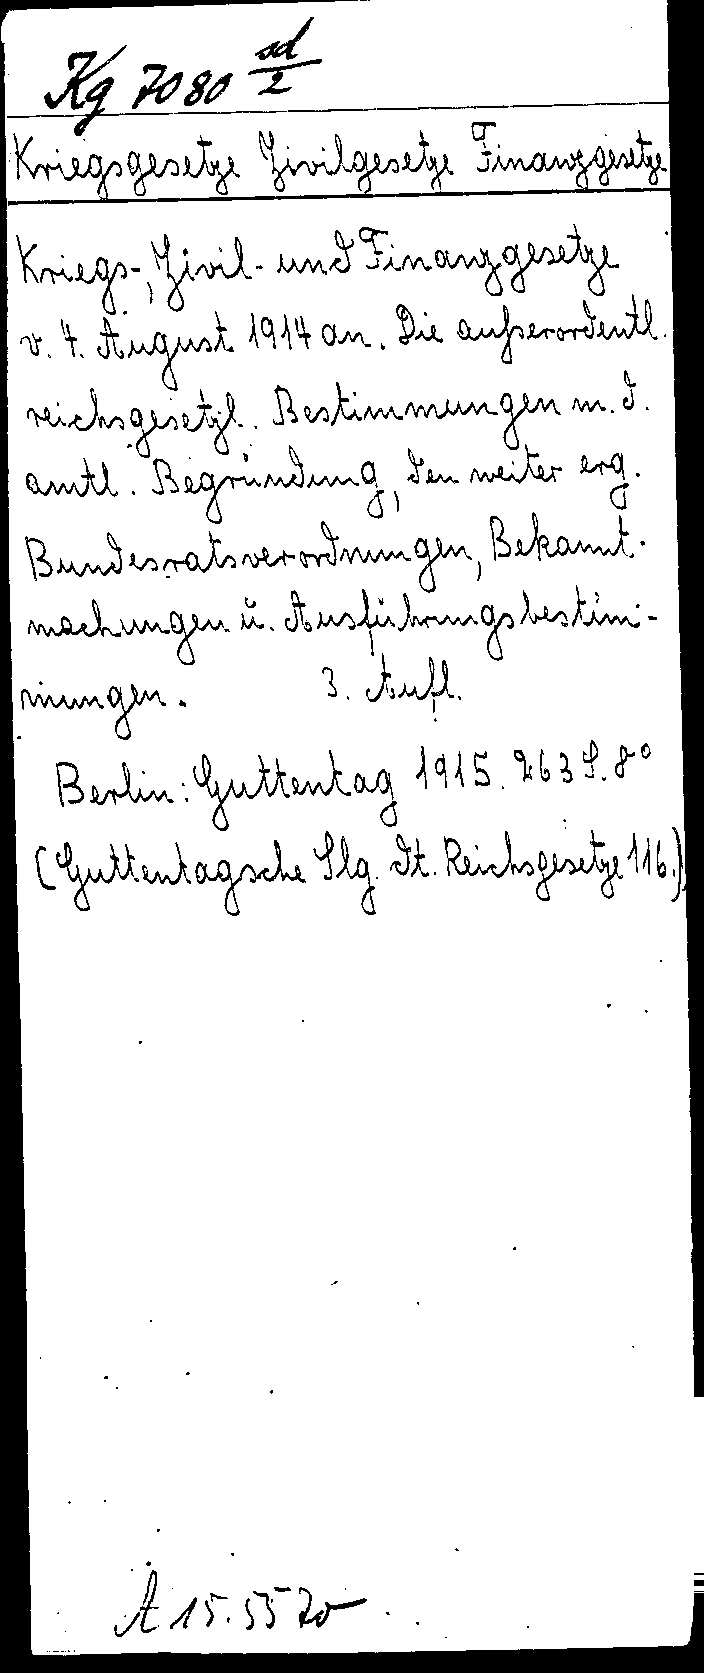 Kg 7080 sd/2
Kriegsgesetze Zivilgesetze Finanzgesetze
Kriegs-, Zivil- und Finanzgesetze
v. 4. August 1914 an. Die außerordentl.
reichsgesetzl. Bestimmungen m. d.
amtl. Begründung, den weiter erg.
Bundesratsverordnungen, Bekannt-
machungen u. Ausführungsbestim-
mungen. 3. Aufl.
Berlin: Guttentag 1915. 263 S. 8°
(Guttentagsche Slg. dt. Reichsgesetze 116.)
A 15.5570